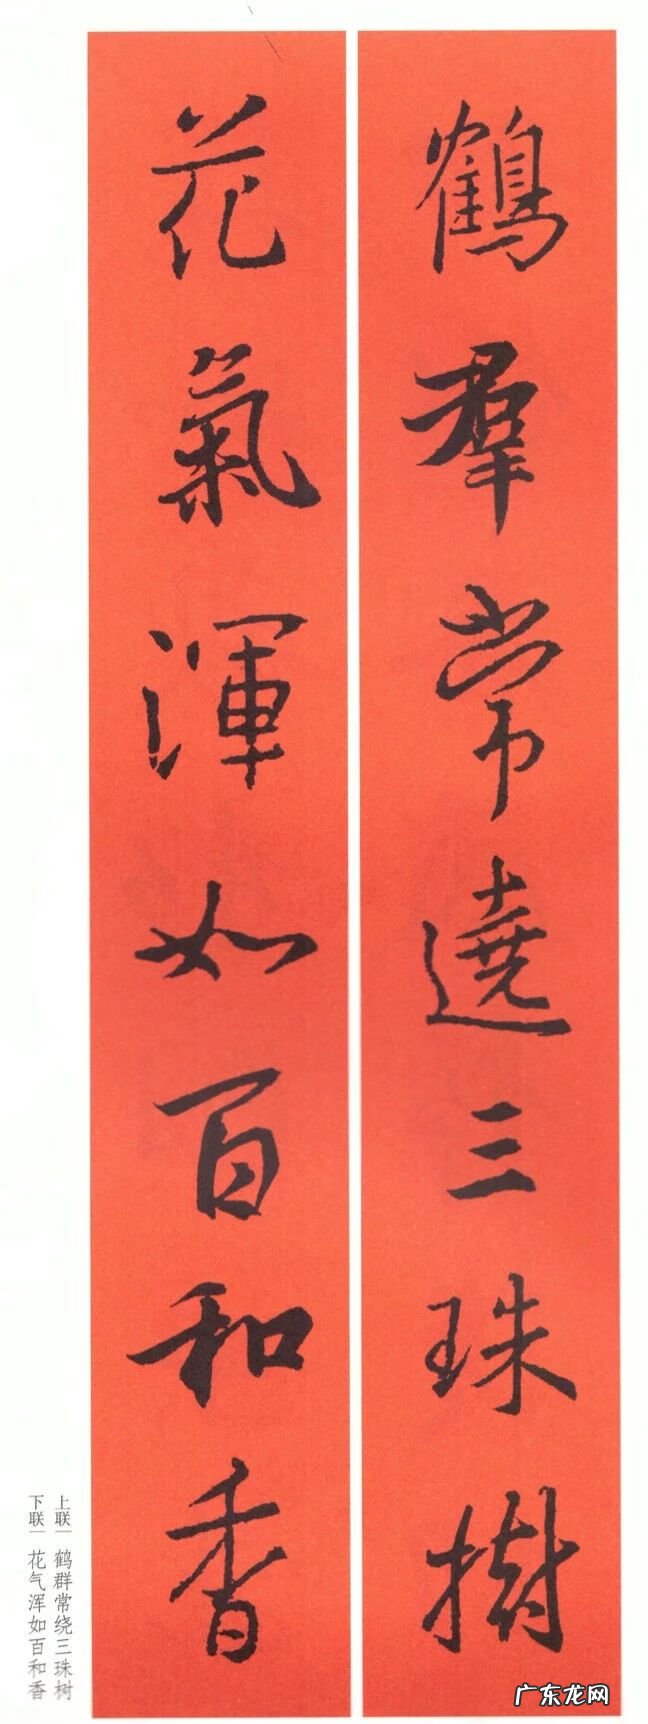 鶴羣常遶三珠樹
花氣渾如百和香
上联｜鹤群常绕三珠树
下联｜花气浑如百和香
广东龙网